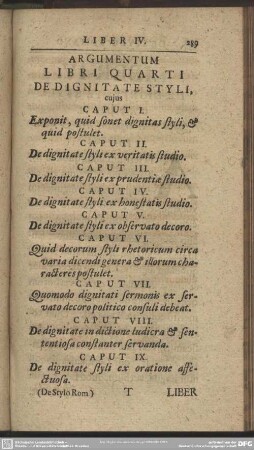 LIBER IV. 289
ARGUMENTUM
LIBRI QUARTI
DE DIGNITATE STYLI,
cujus
CAPUT I.
Exponit, quid sonet dignitas styli, &
quid postulet.
CAPUT II.
De dignitate styli ex veritatis studio.
CAPUT III.
De dignitate styli ex prudentiæ studio.
CAPUT IV.
De dignitate styli ex honestatis studio.
CAPUT V.
De dignitate styli ex observato decoro.
CAPUT VI.
Quid decorum styli rhetoricum circa
varia dicendi genera & illorum cha-
racteres postulet.
CAPUT VII.
Quomodo dignitati sermonis ex ser-
vato decoro politico consuli debeat.
CAPUT VIII.
De dignitate in dictione ludicra & sen-
tentiosa constanter servanda.
CAPUT IX.
De dignitate styli ex oratione affe-
ctuosa.
(De Stylo Rom.) T LIBER